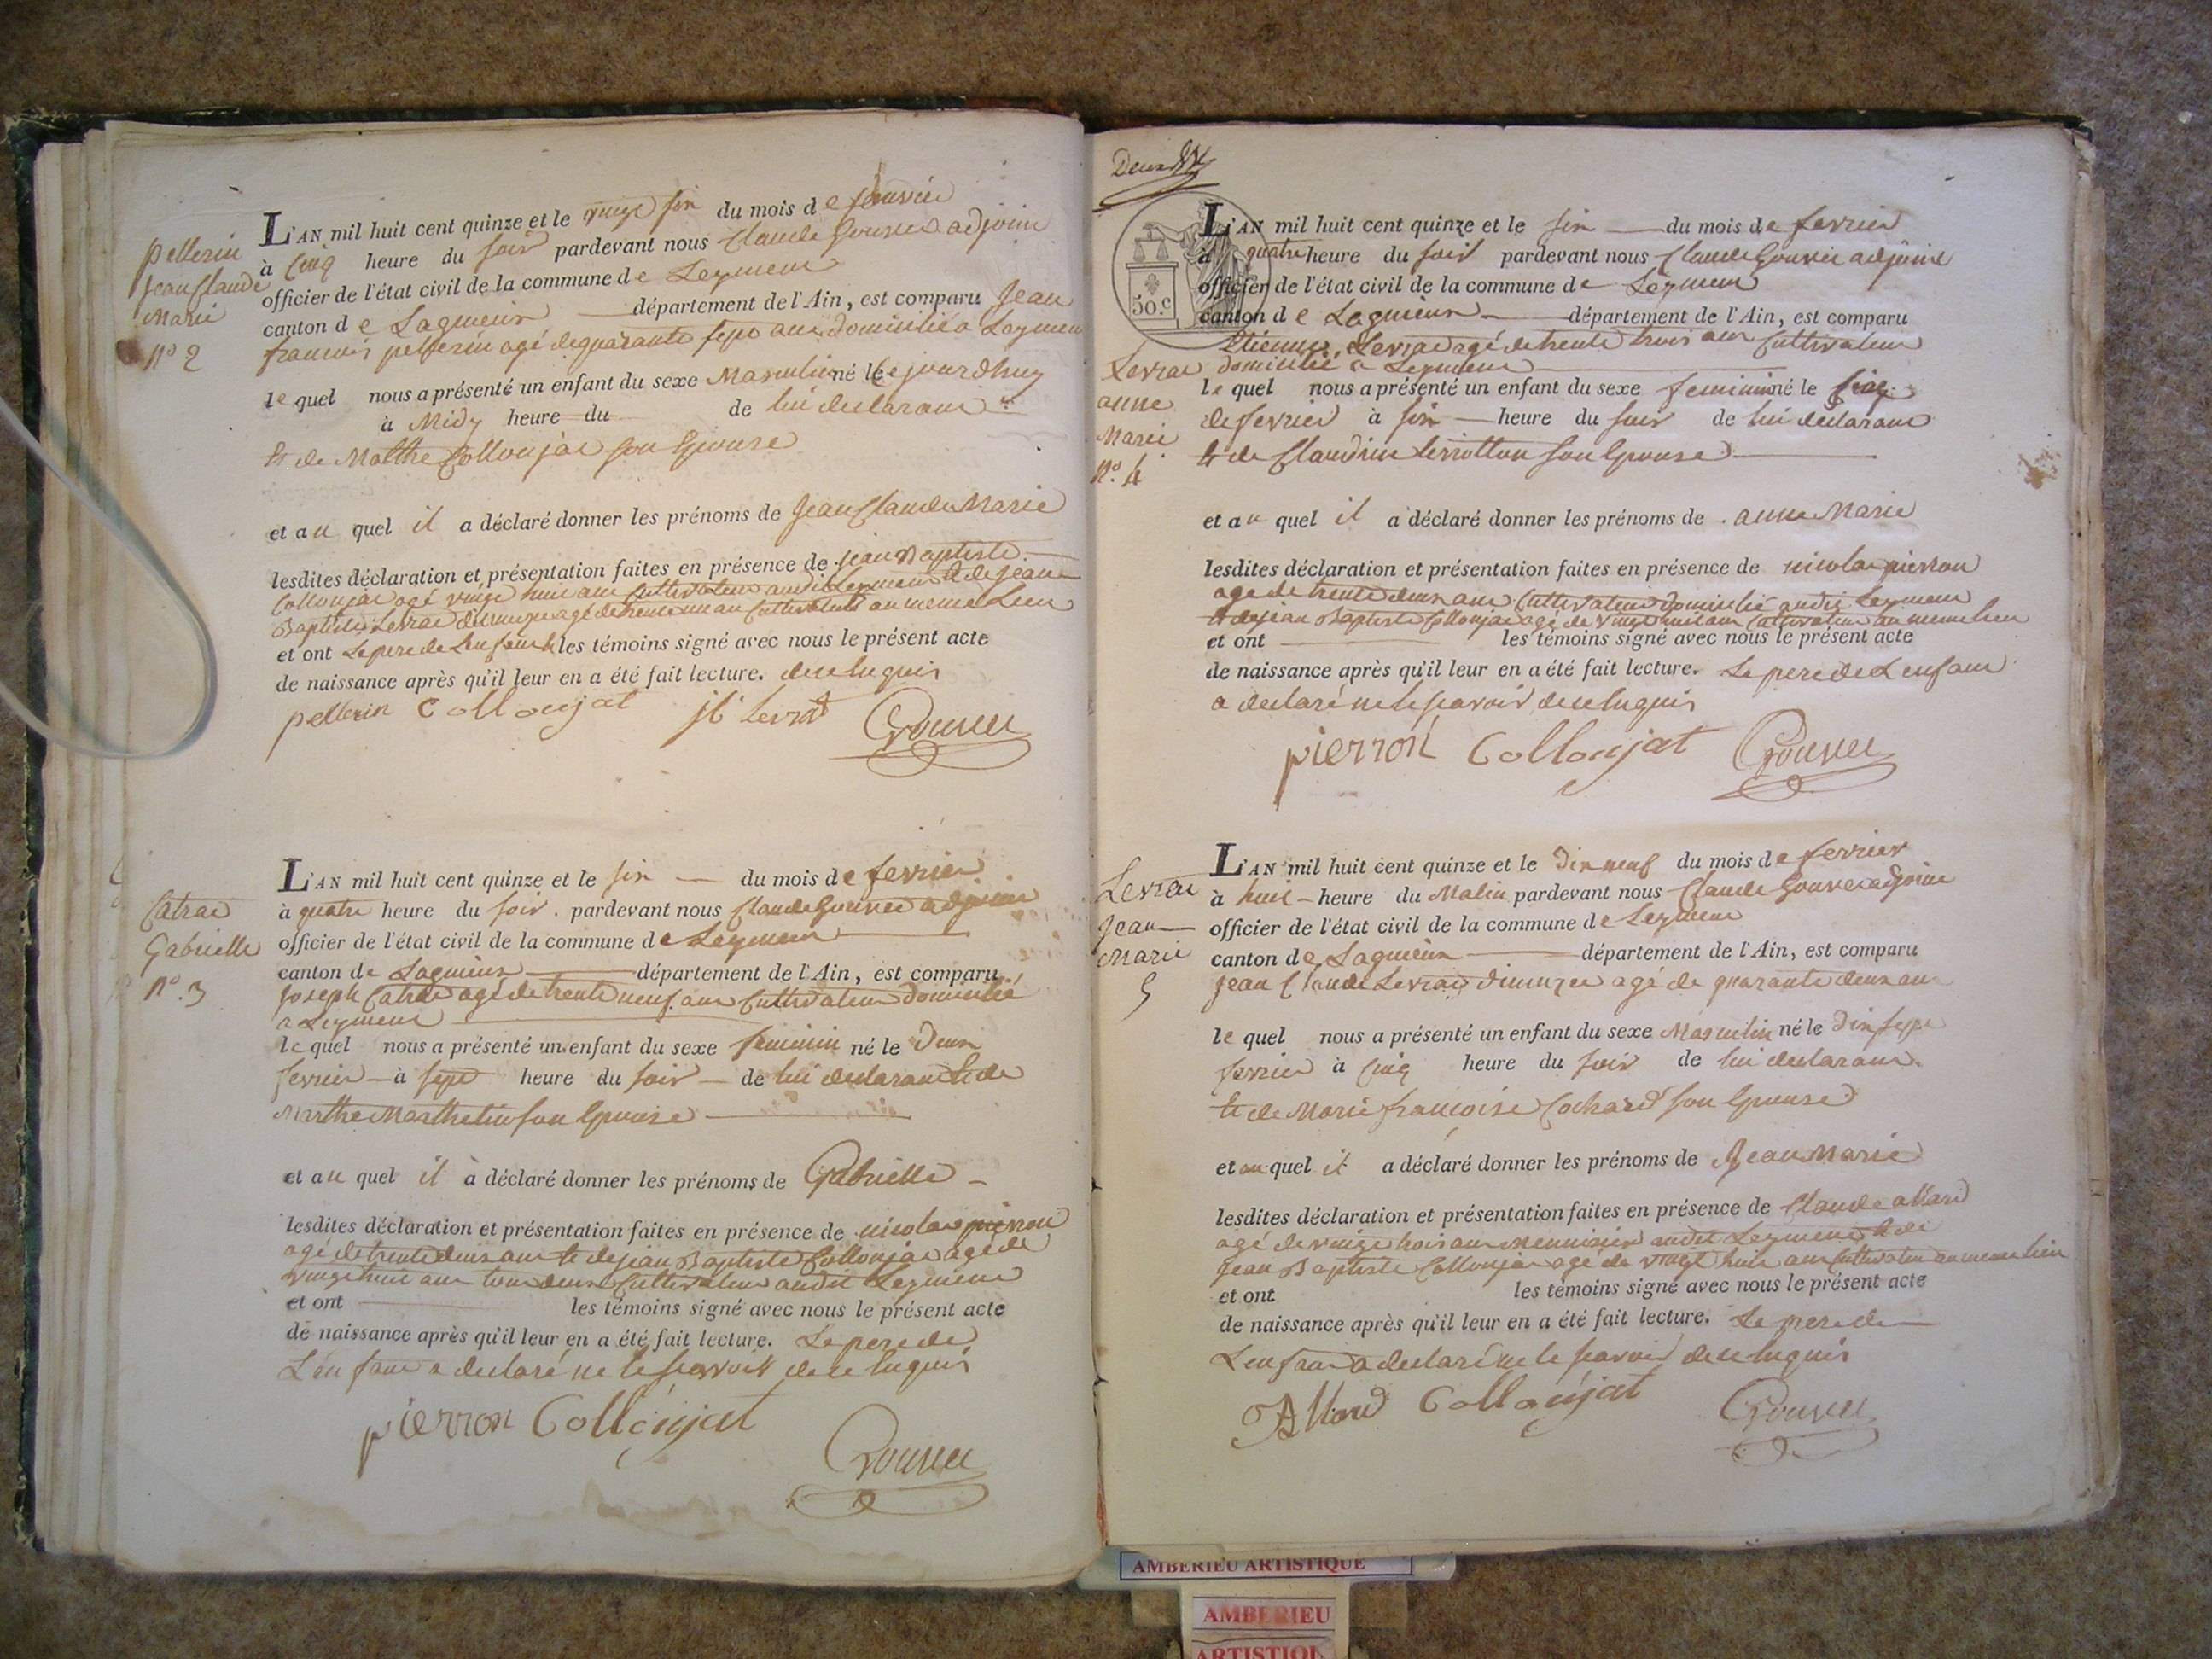 Pellerin
Jean Claude
Marie
N° 2
L'AN mil huit cent quinze et le vingt six du mois de janvier
à cinq heure du soir pardevant nous Claude Gouver adjoint
officier de l'état civil de la commune de Leyment
canton de Lagnieux département de l'Ain, est comparu Jean
francois pellerin agé de quarante sept ans domicilié a Leyment
lequel nous a présenté un enfant du sexe Masculin né le ce jourdhuy
à Midy heure du de lui declarant
et de Malthe Collonjat son Epouse
et au quel il a déclaré donner les prénoms de Jean Claude Marie
lesdites déclaration et présentation faites en présence de Jean Baptiste
Collonjat agé vingt huit ans Cultivateur audit Leyment et de Jean
Baptiste Levrat agé de trente un an Cultivateur au meme Lieu
et ont Le pere de Lenfant et les témoins signé avec nous le présent acte
de naissance après qu'il leur en a été fait lecture. de ce enquis
pellerin Collonjat jb Levrat Gouver
Catrat
Gabrielle
N°. 3
L'AN mil huit cent quinze et le six du mois de fevrier
à quatre heure du soir. pardevant nous Claude Gouver adjoint
officier de l'état civil de la commune de Leyment
canton de Lagnieux département de l'Ain, est comparu
Joseph Catrat agé de trente neuf ans Cultivateur domicilié
a Leyment
lequel nous a présenté un enfant du sexe feminin né le Deux
fevrier à sept heure du soir de lui declarant et de
Marthe Marthelin son Epouse
et au quel il à déclaré donner les prénoms de Gabrielle
lesdites déclaration et présentation faites en présence de nicolas pierron
agé de trente deux ans et de jean Baptiste Collonjat agé de
vingt huit ans tous deux Cultivateur audit Leyment
et ont les témoins signé avec nous le présent acte
de naissance après qu'il leur en a été fait lecture. Le pere de
L'enfant a declaré ne le scavoir de ce enquis
pierron Collonjat
Gouver
Deux
50.c
L'AN mil huit cent quinze et le six du mois de fevrier
à quatre heure du soir pardevant nous Claude Gouver adjoint
officier de l'état civil de la commune de Leyment
canton de Lagnieux département de l'Ain, est comparu
Etienne Levrat agé de trente trois ans Cultivateur
domicilié a Leyment
Levrat
anne
Marie
N°. 4
lequel nous a présenté un enfant du sexe feminin né le cinq
de fevrier à six heure du soir de lui declarant
et de Claudine son Epouse
et au quel il a déclaré donner les prénoms de anne Marie
lesdites déclaration et présentation faites en présence de nicolas pierron
agé de trente deux ans Cultivateur domicilié audit Leyment
et de jean Baptiste Collonjat agé de vingt huit ans Cultivateur au meme lieu
et ont les témoins signé avec nous le présent acte
de naissance après qu'il leur en a été fait lecture. Le pere de Lenfant
a declaré ne le scavoir de ce enquis
pierron Collonjat Gouver
Levrat
Jean
Marie
5
L'AN mil huit cent quinze et le Dix neuf du mois de fevrier
à huit heure du Matin pardevant nous Claude Gouver adjoint
officier de l'état civil de la commune de Leyment
canton de Lagnieux département de l'Ain, est comparu
Jean Claude Levrat agé de quarante deux ans
lequel nous a présenté un enfant du sexe Masculin né le Dix sept
fevrier à cinq heure du soir de lui declarant
et de Marie francoise Cochard son Epouse
et au quel il a déclaré donner les prénoms de Jean Marie
lesdites déclaration et présentation faites en présence de Claude allard
agé de vingt trois ans Menuisier audit Leyment et de
Jean Baptiste Collonjat agé de vingt huit ans Cultivateur au meme lieu
et ont les témoins signé avec nous le présent acte
de naissance après qu'il leur en a été fait lecture. Le pere de
Lenfant a declaré ne le scavoir de ce enquis
Allard Collonjat Gouver
AMBERIEU ARTISTIQUE
AMBERIEU
ARTISTIQU